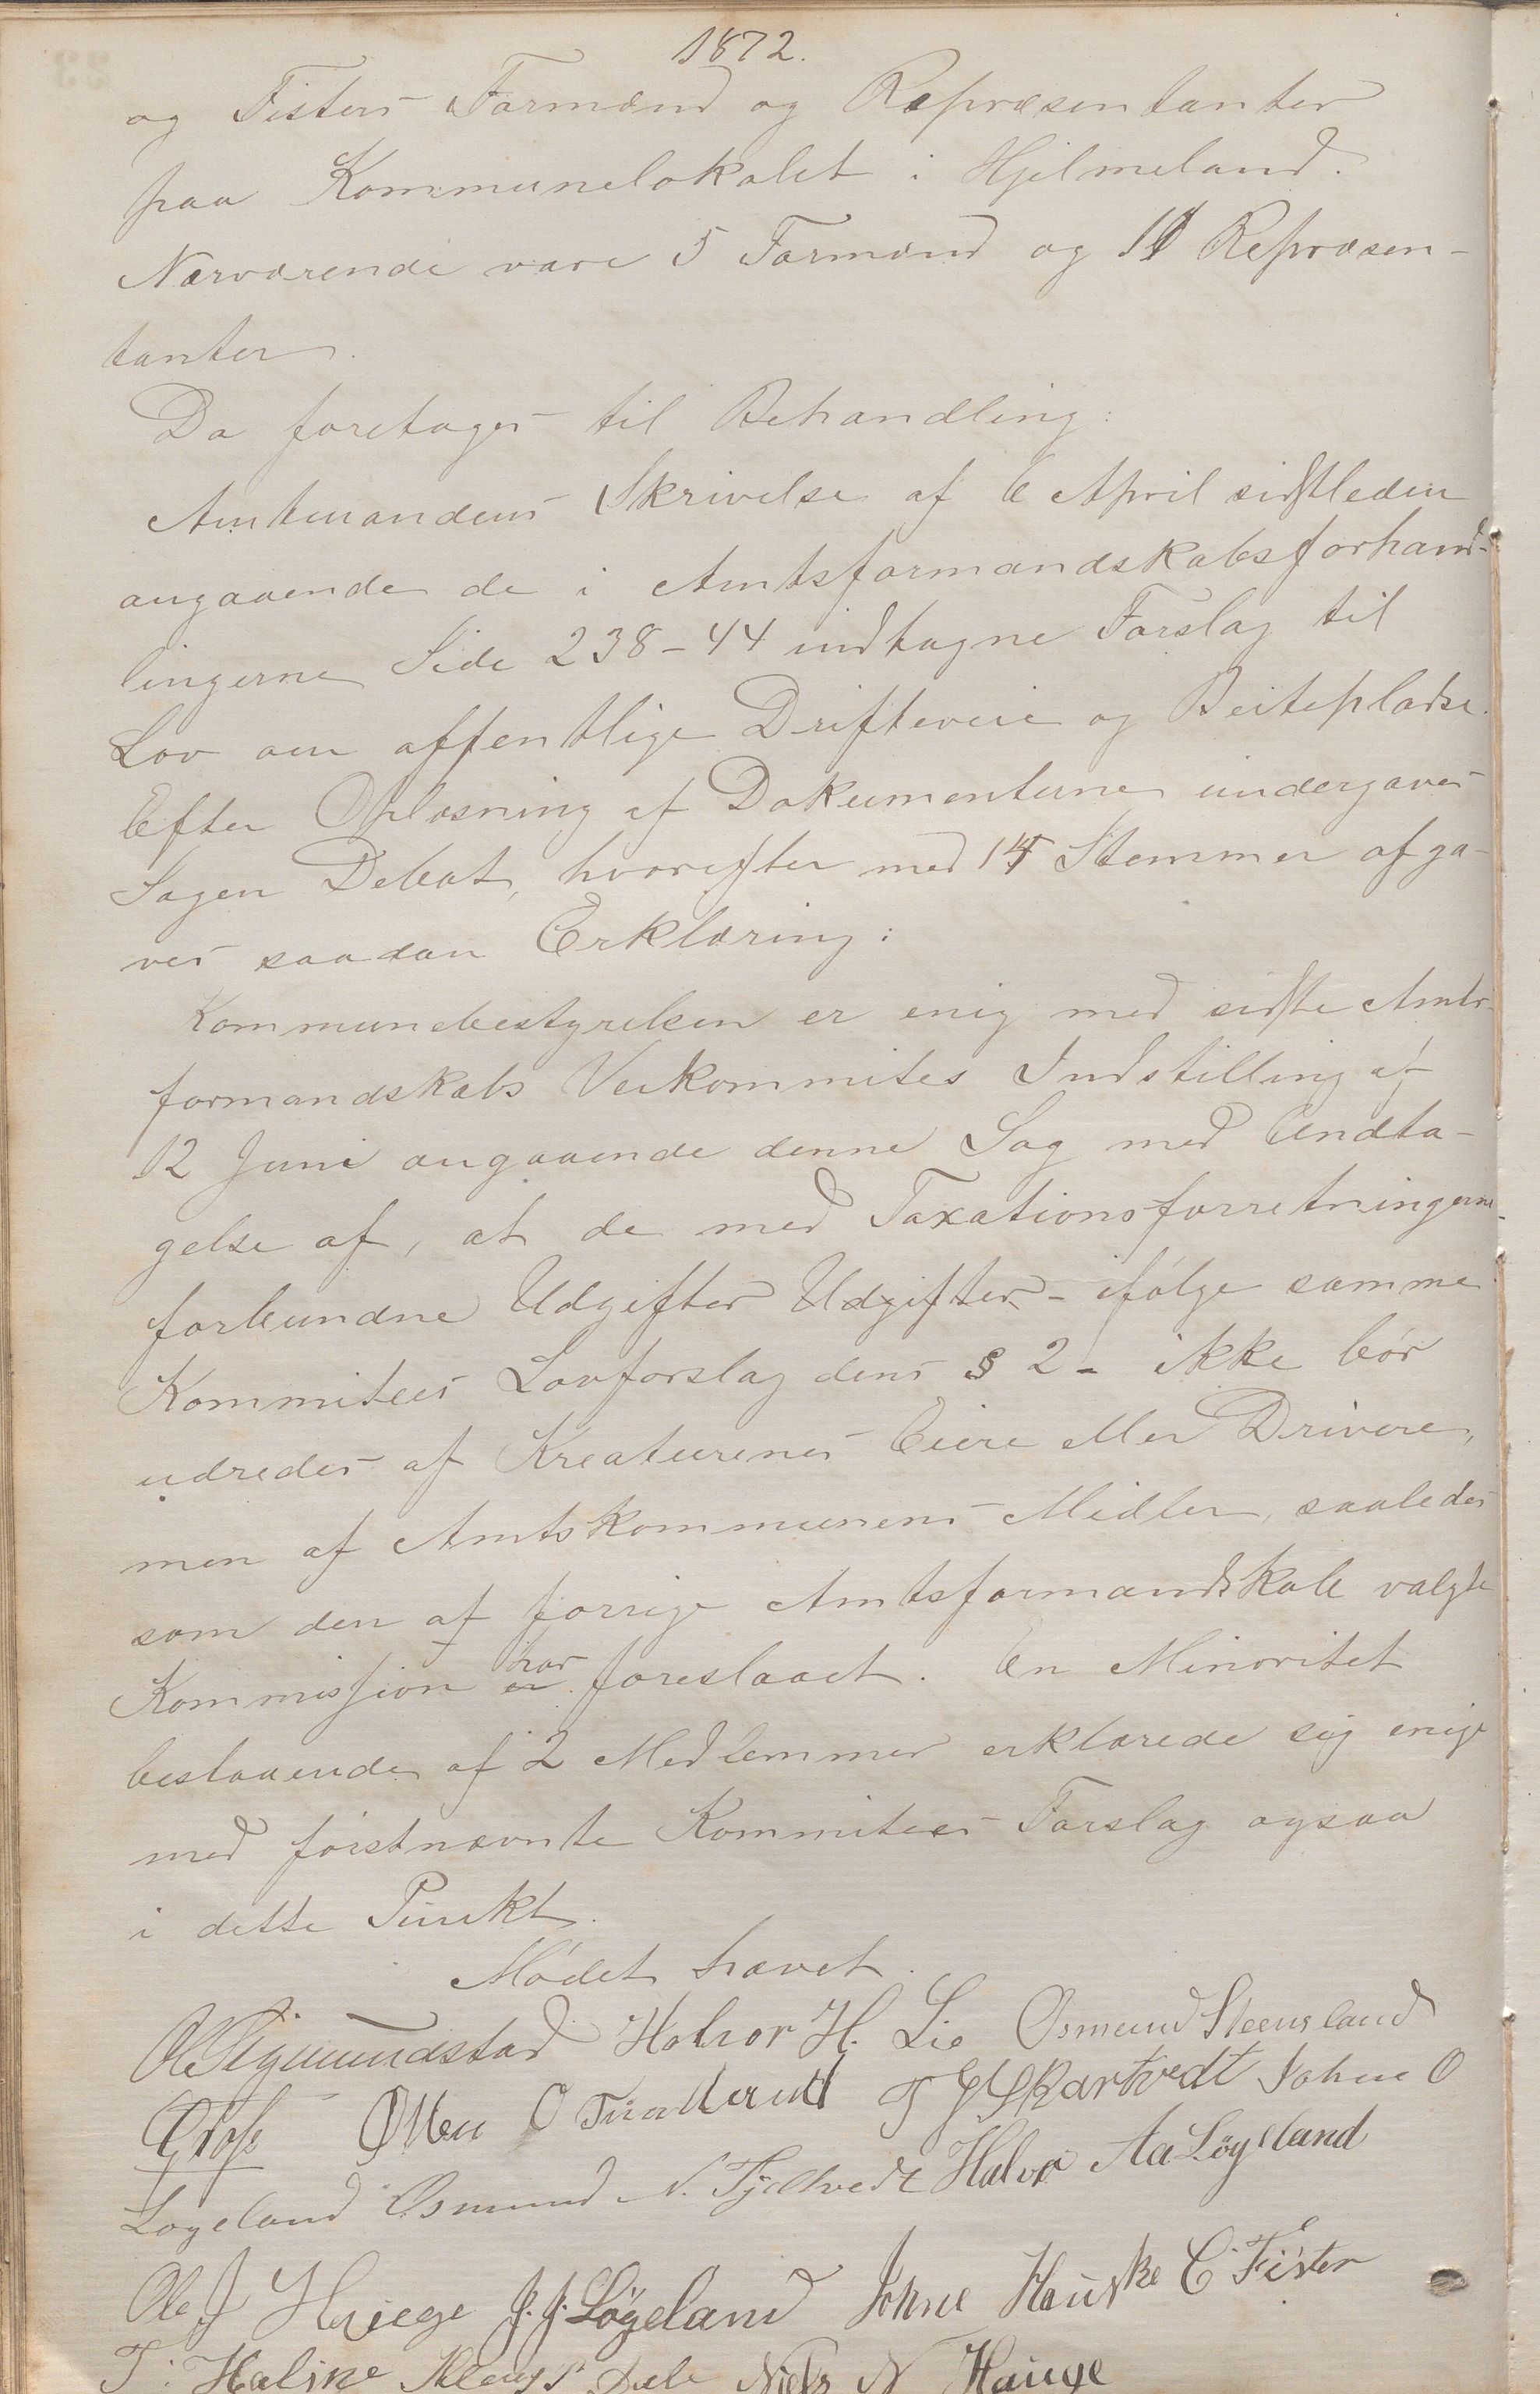 1872.
og Fisters Formænd og Repræsentanter
paa Kommunelokalet i Hjelmeland.
Nærværende vare 5 Formænd og 11 Repræsen-
tanter.
Da foretages til Behandling:
Amtmandens Skrivelse af 6 April sidstleden
angaaende de i Amtsformandskabsforhand-
lingerne Side 238-44 indtagne Forslag til
Lov om offentlige Drifteveie og Beitepladse.
Efter Oplæsning af Dokumenterne undergaves
Sagen Debat, hvorefter med 14 Stemmer afga-
ves saadan Erklæring:
Kommunebestyrelsen er enig med sidste Amts-
formandskabs Veikommites Indstilling af
12 Juni angaaende denne Sag med Undta-
gelse af, at de med Taxationsforretningerne
forbundne Udgifter Udgifter - ifølge samme
Kommitees Lovforslag dens § 2 - ikke bør
udredes af Kreaturenes Eiere eller Drivere,
men af Amtskommunens Midler, saaledes
som den af forrige Amtsformandskab valgte
Kommission er har foreslaaet. En Minoritet
bestaaende af 2 Medlemmer erklærede sig enige
med førstnævnte Kommitees Forslag ogsaa
i dette Punkt.
Mødet hævet.
Ole Sigmundstad Halvor H. Lie Osmund Steensland
O T G Skartvedt Johne O
Løgeland Osmund N. Halvor Aa Løgeland
Ole J J. J. Løgeland Johne Hauske C Fister
T. Niels N Hauge